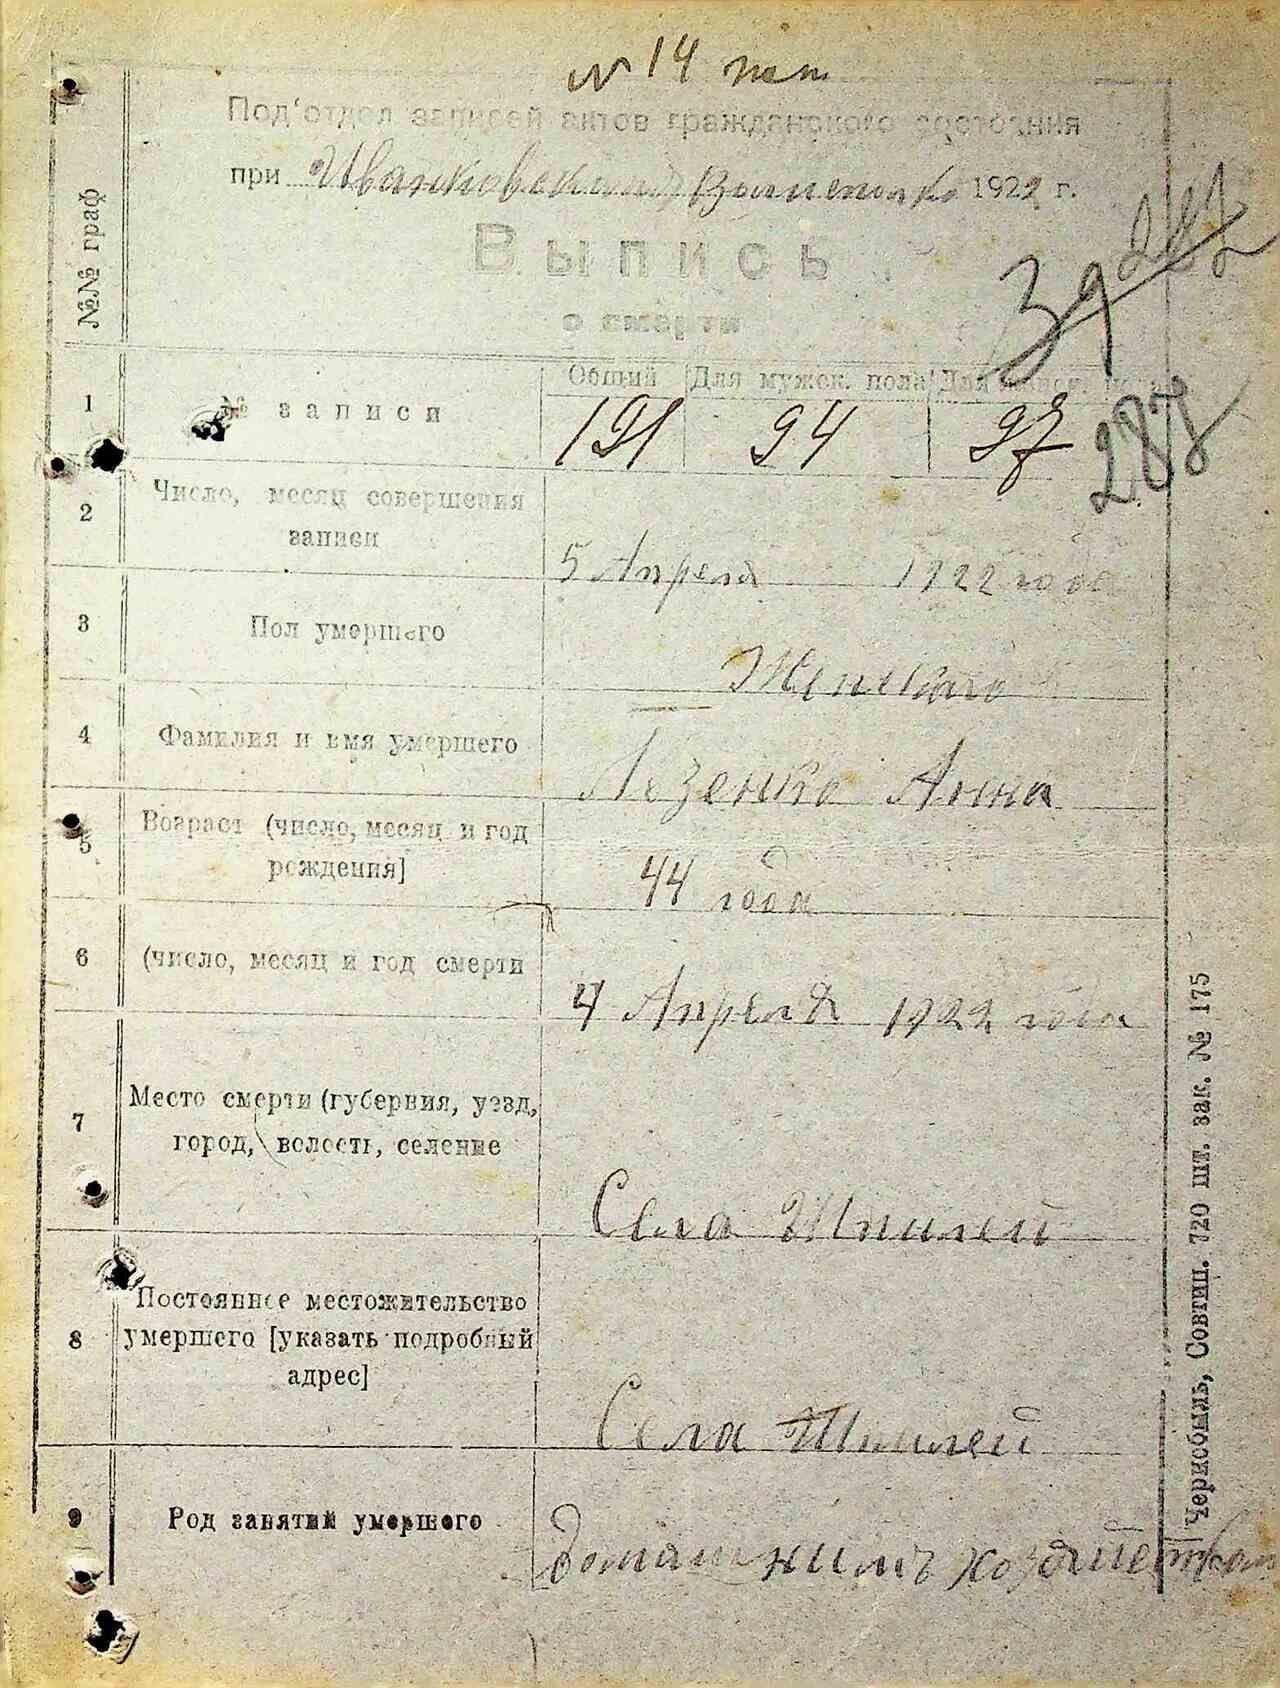 № 14
Под'отдел записей актов гражданского состояния
при Иванковском 1922 г.
Выпись
о смерти
№№ граф
Общий Для мужск. пола Для
1 № записи 191 94 97
39
287
2 Число, месяц совершения
записи
5 Апреля 1922 года
3 Пол умершего
Женскаго
4 Фамилия и имя умершего
Лезенко Анна
5 Возраст (число, месяц и год
рождения]
44 года
6 (число, месяц и год смерти
4 Апреля 1922 года
7 Место смерти (губерния, уезд,
город, волость, селение
Села Шпилей
8 Постоянное местожительство
умершего [указать подробный
адрес]
Села Шпилей
9 Род занятий умершего
домашнимъ хозяйством
Чернобыль, Совтип. 720 шт. зак. № 175